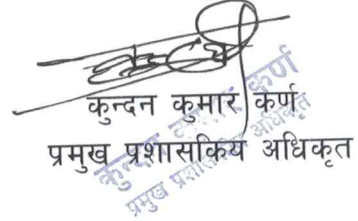 कुन्दन कुमार कर्ण
प्रमुख प्रशासकिय अधिकृत
कुन्दन कुमार कर्ण
प्रमुख प्रशासकिय अधिकृत